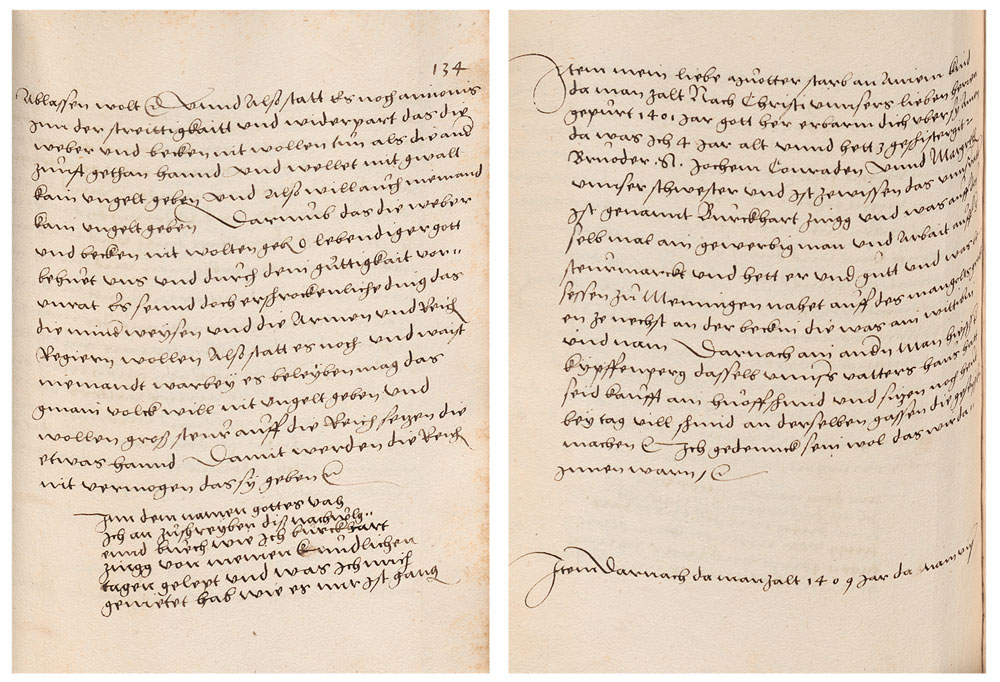 134
Ablassen wolt Vnnd Alß statt Es noch annonis
Jnn der streittigkaitt vnd widerpart das die
weber vnd becken nit wollen tun als die annd
zunfft gethan hannd Vnnd wellet mit gwalt
kain vngelt geben vnd Alß will auch niemand
kain vngelt geben Darumb das die weber
vnd becken nit wolten geben O lebendiger gott
behuet vns vnd durch dem guttigkait vor
vnrat Es seinnd doch erschrockenliche ding das
die mind weysen vnd die Armen vnd Reich
Regiern wollen Alß statt es noch vnd waist
niemandt warbey es beleyben mag das
gmain volck will nit vngelt geben vnd
wollen groß steur auff die Reich setzen die
etwas hannd Damit werden die Reich
nit vermogen das sy geben
Jnn dem namen gottes vah
Ich an zuschreyben diß nachvolg
ennd buech wie Ich burckhart
zingg von meinen kindlichen
tagen gelept vnd was Ich mich
genietet hab wie es mir ist gang
Jtem mein liebe muotter starb an Ainem kind
da man zalt Nach Christi vnnsers lieben herren
gepurt 1401 Jar gott her erbarm dich vber sy
da was Ich 4 Jar alt vnnd hett 3 geschistergit
Bruoder S. Jochem Conraden Vnnd Margreth
vnnser schwester vnd Ist zewissen das vnnser
Ist genannt Burckhart zingg vnd was auff die
selb mal ain gewerbig man vnd Arbait auff
steurmarckt vnd hett er vnd gutt vnd was
sessen zu Menningen nahet auff des mangolts
en ze nechst an der beckni die was ain wittib
vnd nam Darnach ain andern man hieß
kypffenperg dasselb vnnsers vatters hauß hatt
seid kaufft ain huoffschmid vnd sitzen noch heut
bey tag vill schmid an derselben gassen die
machen Ich gedennck sein wol das wir da
Jnnen warn
Jtem Darnach da man zalt 1409 Jar da nam